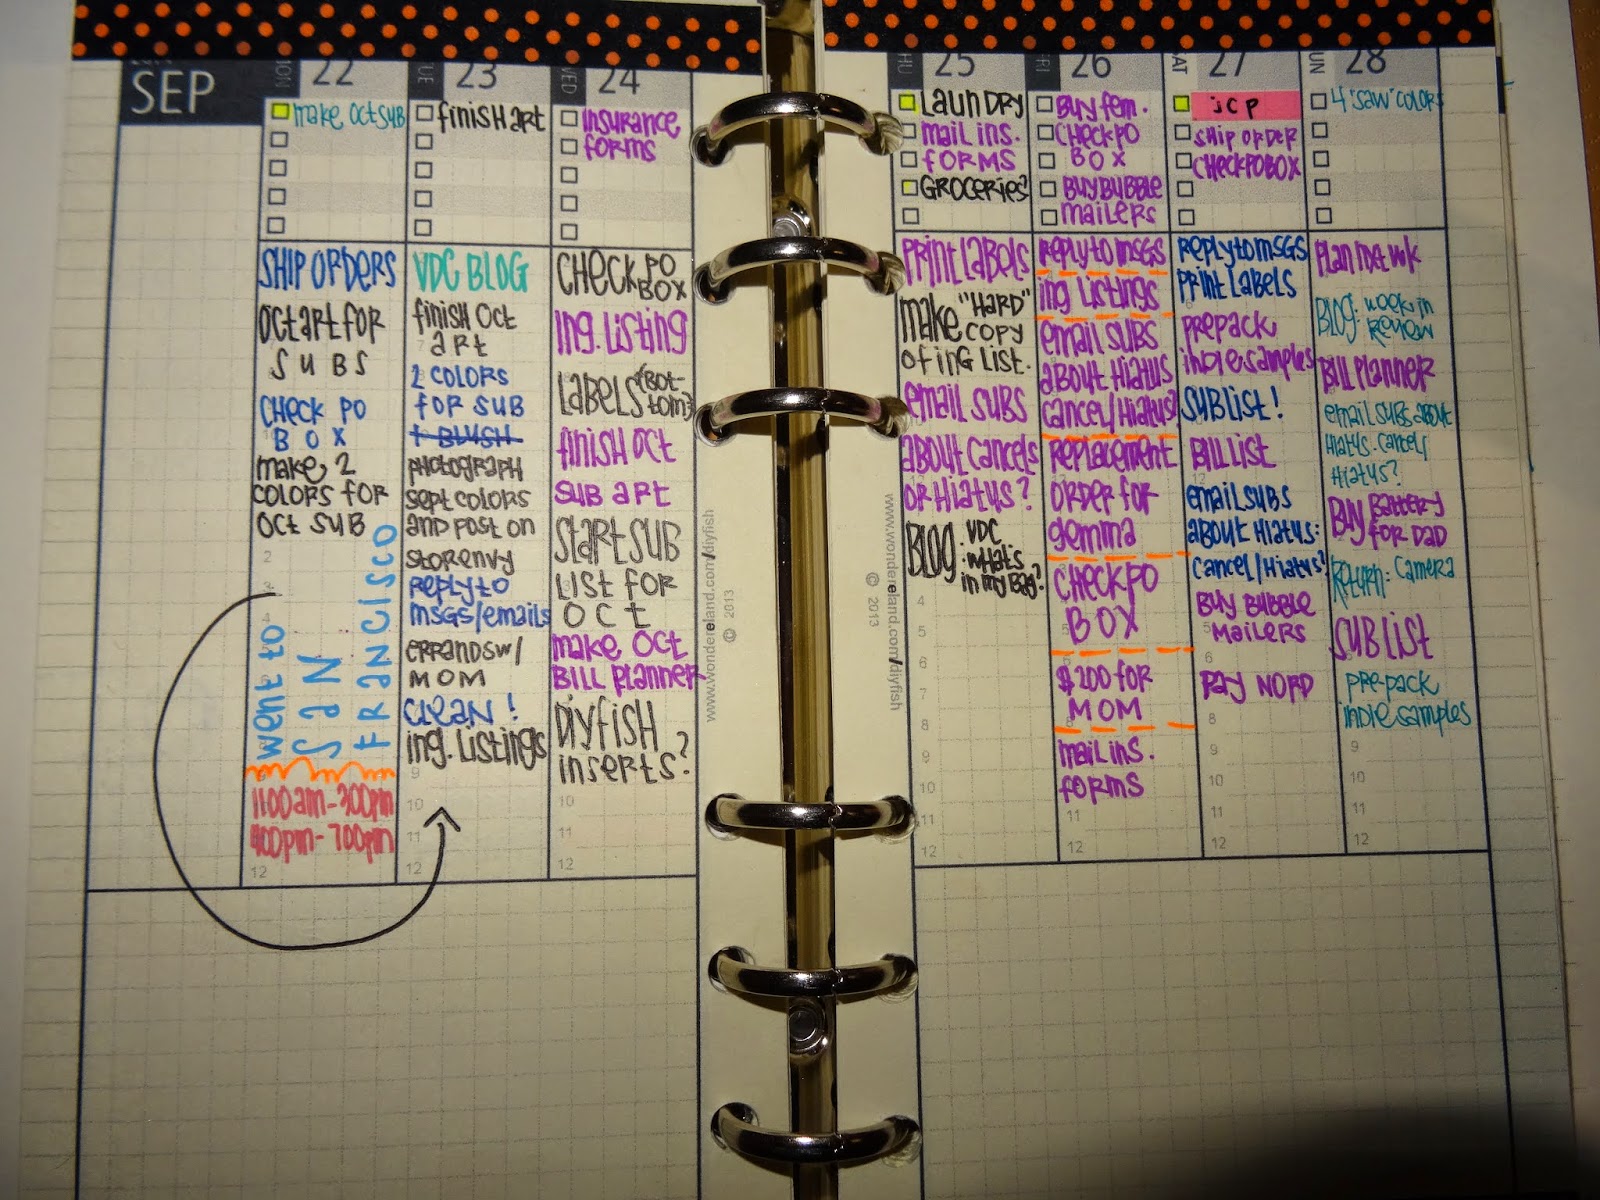 SEP
MON 22
make OCT SUB
SHIP ORDERS
OCT ART FOR
SUBS
CHECK PO
BOX
make 2
COLORS FOR
OCT SUB
went to
SAN
FRANCISCO
1100am-300pm
400pm-700pm
12
TUE 23
finish ART
VDC BLOG
finish OCT
ART
2 COLORS
FOR SUB
+ BLUSH
PHOTOGRAPH
SEPT COLORS
AND POST ON
STORENVY
REPLY TO
MSGS/EMAILS
ERRANDS W/
MOM
CLEAN!
ing. Listings
9
10
11
12
WED 24
INSURANCE
FORMS
CHECK PO
BOX
ING. LISTING
LABELS (BOT-
TOM)?
finish OCT
SUB ART
START SUB
LIST FOR
OCT
make OCT
BILL PLANNER
DIYFISH
inserts?
10
11
12
www.wondereland.com/diyfish
© 2013
www.wondereland.com/diyfish
© 2013
THU 25
LAUNDRY
mail ins.
FORMS
GROCERIES?
PRINT LABELS
make "HARD"
COPY
OF ING LIST.
EMAIL SUBS
ABOUT CANCELS
OR HIATUS?
BLOG: VDC
WHAT'S
IN MY BAG?
4
5
6
7
8
9
10
11
12
FRI 26
BUY fem.
CHECK PO
BOX
BUY BUBBLE
mailers
REPLY TO MSGS
ing Listings
EMAIL SUBS
ABOUT HIATUS
CANCEL/HIATUS?
REPLACEMENT
ORDER FOR
gemma
CHECK PO
BOX
$200 FOR
MOM
mail ins.
forms
11
12
SAT 27
JCP
SHIP ORDER
CHECK PO BOX
REPLY TO MSGS
PRINT LABELS
PREPACK
INDIE SAMPLES
SUB LIST!
BILL LIST
EMAIL SUBS
ABOUT HIATUS:
CANCEL/HIATUS?
BUY BUBBLE
MAILERS
6
PAY NORD
8
9
10
11
12
SUN 28
4 "SAW" COLORS
PLAN NXT WK
BLOG: WEEK IN
REVIEW
BILL PLANNER
EMAIL SUBS ABOUT
HIATUS. CANCEL/
HIATUS?
BUY BATTERY
FOR DAD
RETURN: CAMERA
SUB LIST
PRE-PACK
INDIE SAMPLES
9
10
11
12